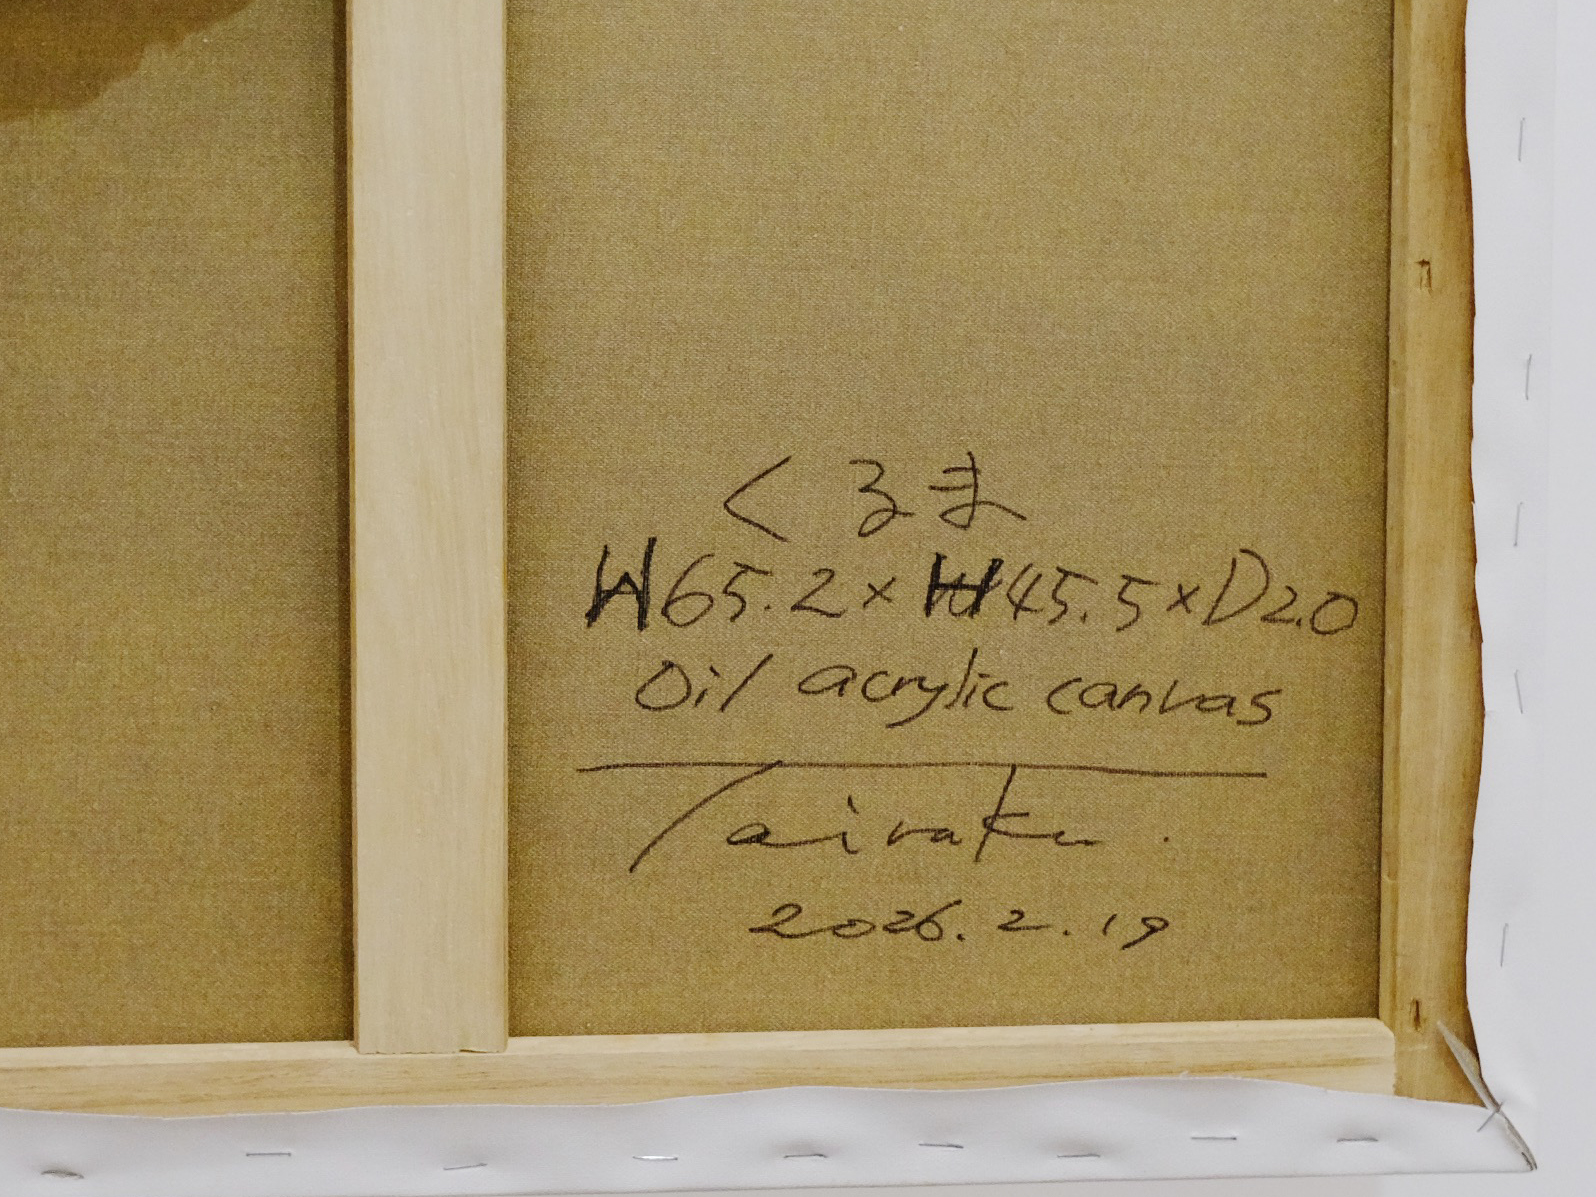 くるま
W65.2×H45.5×D2.0
Oil acrylic canvas
Tairaku.
2026.2.19